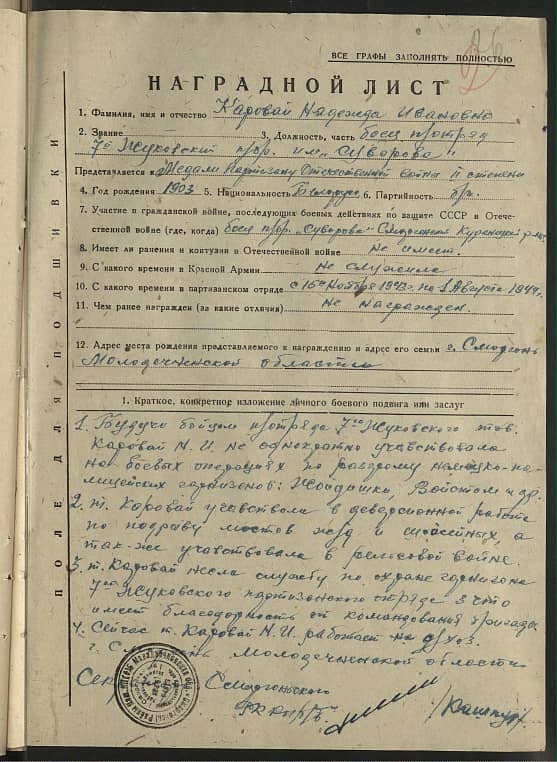 ВСЕ ГРАФЫ ЗАПОЛНЯТЬ ПОЛНОСТЬЮ
НАГРАДНОЙ ЛИСТ
1. Фамилия, имя и отчество Каровай Надежда Ивановна
2. Звание 3. Должность, часть боец п/отряд
7й Жуковский п/бр. им. "Суворова"
Представляется к Медали Партизану Отечественной войны II степени
4. Год рождения 1903 5. Национальность 6. Партийность
7. Участие в гражданской войне, последующих боевых действиях по защите СССР в Отече-
ственной войне (где, когда) боец п/бр. "Суворова" Сморгонский
8. Имеет ли ранения и контузии в Отечественной войне не имеет.
9. С какого времени в Красной Армии не служила
10. С какого времени в партизанском отряде с 15го Ноября по 1 Августа 1944г.
11. Чем ранее награжден (за какие отличия) не награжден.
12. Адрес места рождения представляемого к награждению и адрес его семьи г. Сморгонь
Молодечненской области
1. Краткое, конкретное изложение личного боевого подвига или заслуг
1. Будучи бойцом п/отряда 7го Жуковского тов.
Каровай Н. И. не однократно учавствовала
на боевых операциях по разгрому немецко-по-
лицейских гарнизонов: Жодишки, Войстом и др.
2. т. Каровай учавствовал в диверсионной работе
по подрыву мостов и шоссейных, а
так-же учавствовала в рельсовой войне.
3. т. Каровай несла службу по охране гарнизона
7го Жуковского партизанского отряда за что
имеет благодарность от командования бригады
4. Сейчас т. Каровай Н. И. работает
г. Сморгонь Молодечненской области
Сморгоньского
ПОЛЕ ДЛЯ ПОДШИВКИ